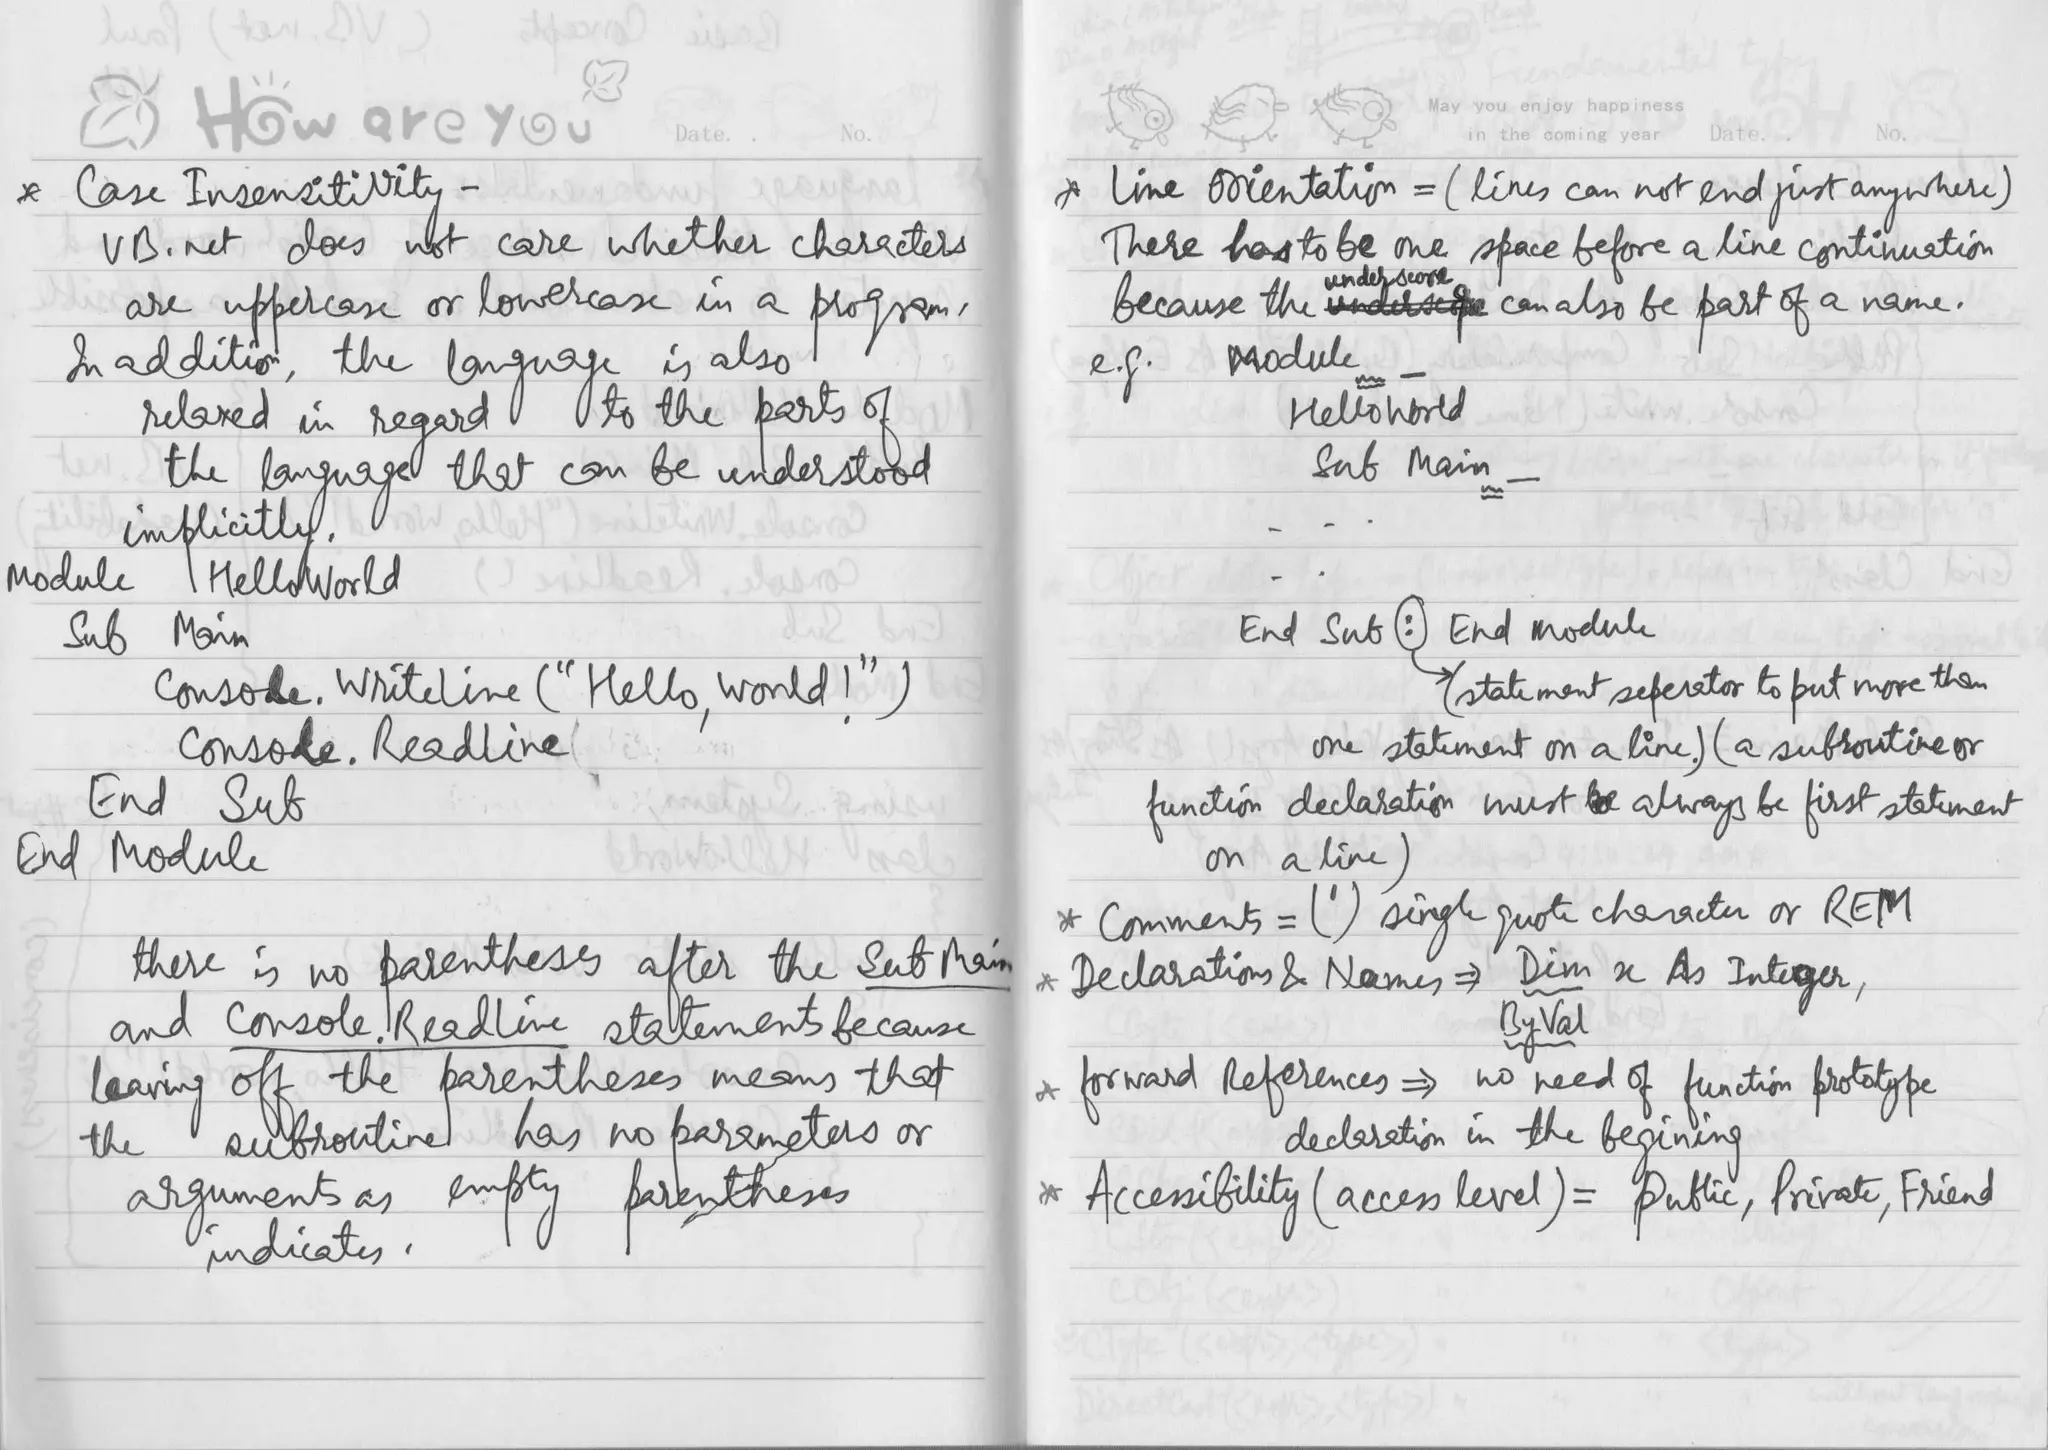 How are you
Date. . No.
* Case Insensitivity -
VB.net does not care whether characters
are uppercase or lowercase in a program.
In addition, the language is also
relaxed in regard to the parts of
the language that can be understood
implicitly.
Module HelloWorld
Sub Main
Console.WriteLine("Hello, World!")
Console.ReadLine
End Sub
End Module
there is no parentheses after the Sub Main
and Console.ReadLine statements because
leaving off the parentheses means that
the subroutine has no parameters or
arguments as empty parentheses
indicates.
May you enjoy happiness
in the coming year Date. . No.
* Line Orientation = (lines can not end just anywhere)
There has to be one space before a line continuation
because the underscore can also be part of a name.
e.g. Module _
HelloWorld
Sub Main _
- - -
- -
End Sub : End Module
(statement seperator to put more than
one statement on a line.) (a subroutine or
function declaration must be always be first statement
on a line)
* Comments = (') single quote character or REM
* Declarations & Names ⇒ Dim x As Integer,
ByVal
* forward References ⇒ no need of function prototype
declaration in the begining
* Accessibility (access level) = Public, Private, Friend